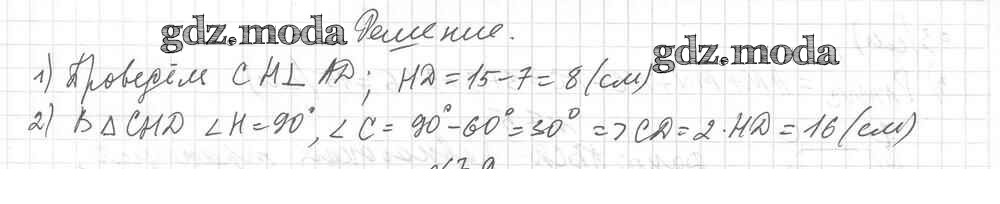 gdz.moda Решение.
gdz.moda
1) Проведём CH⊥AD; HD=15-7=8(см)
2) В △CHD ∠H=90°, ∠C=90°-60°=30° => CD=2·HD=16(см)